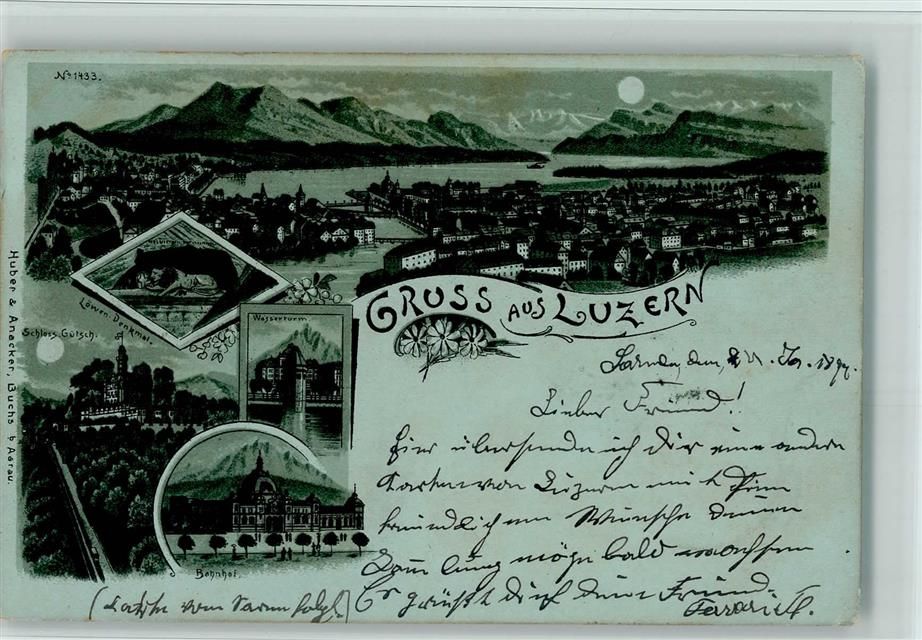 No 1433.
Löwen-Denkmal.
Schloss Gütsch.
Wasserturm.
GRUSS AUS LUZERN
Huber & Anacker, Buchs b/Aarau.
Lieber Freund!
Hier übersende ich Dir eine andere
Karte von Luzern mit dem
freundlichen Wunsche Deine
möge bald wachsen
Es grüßt Dich Dein Freund
Bahnhof.